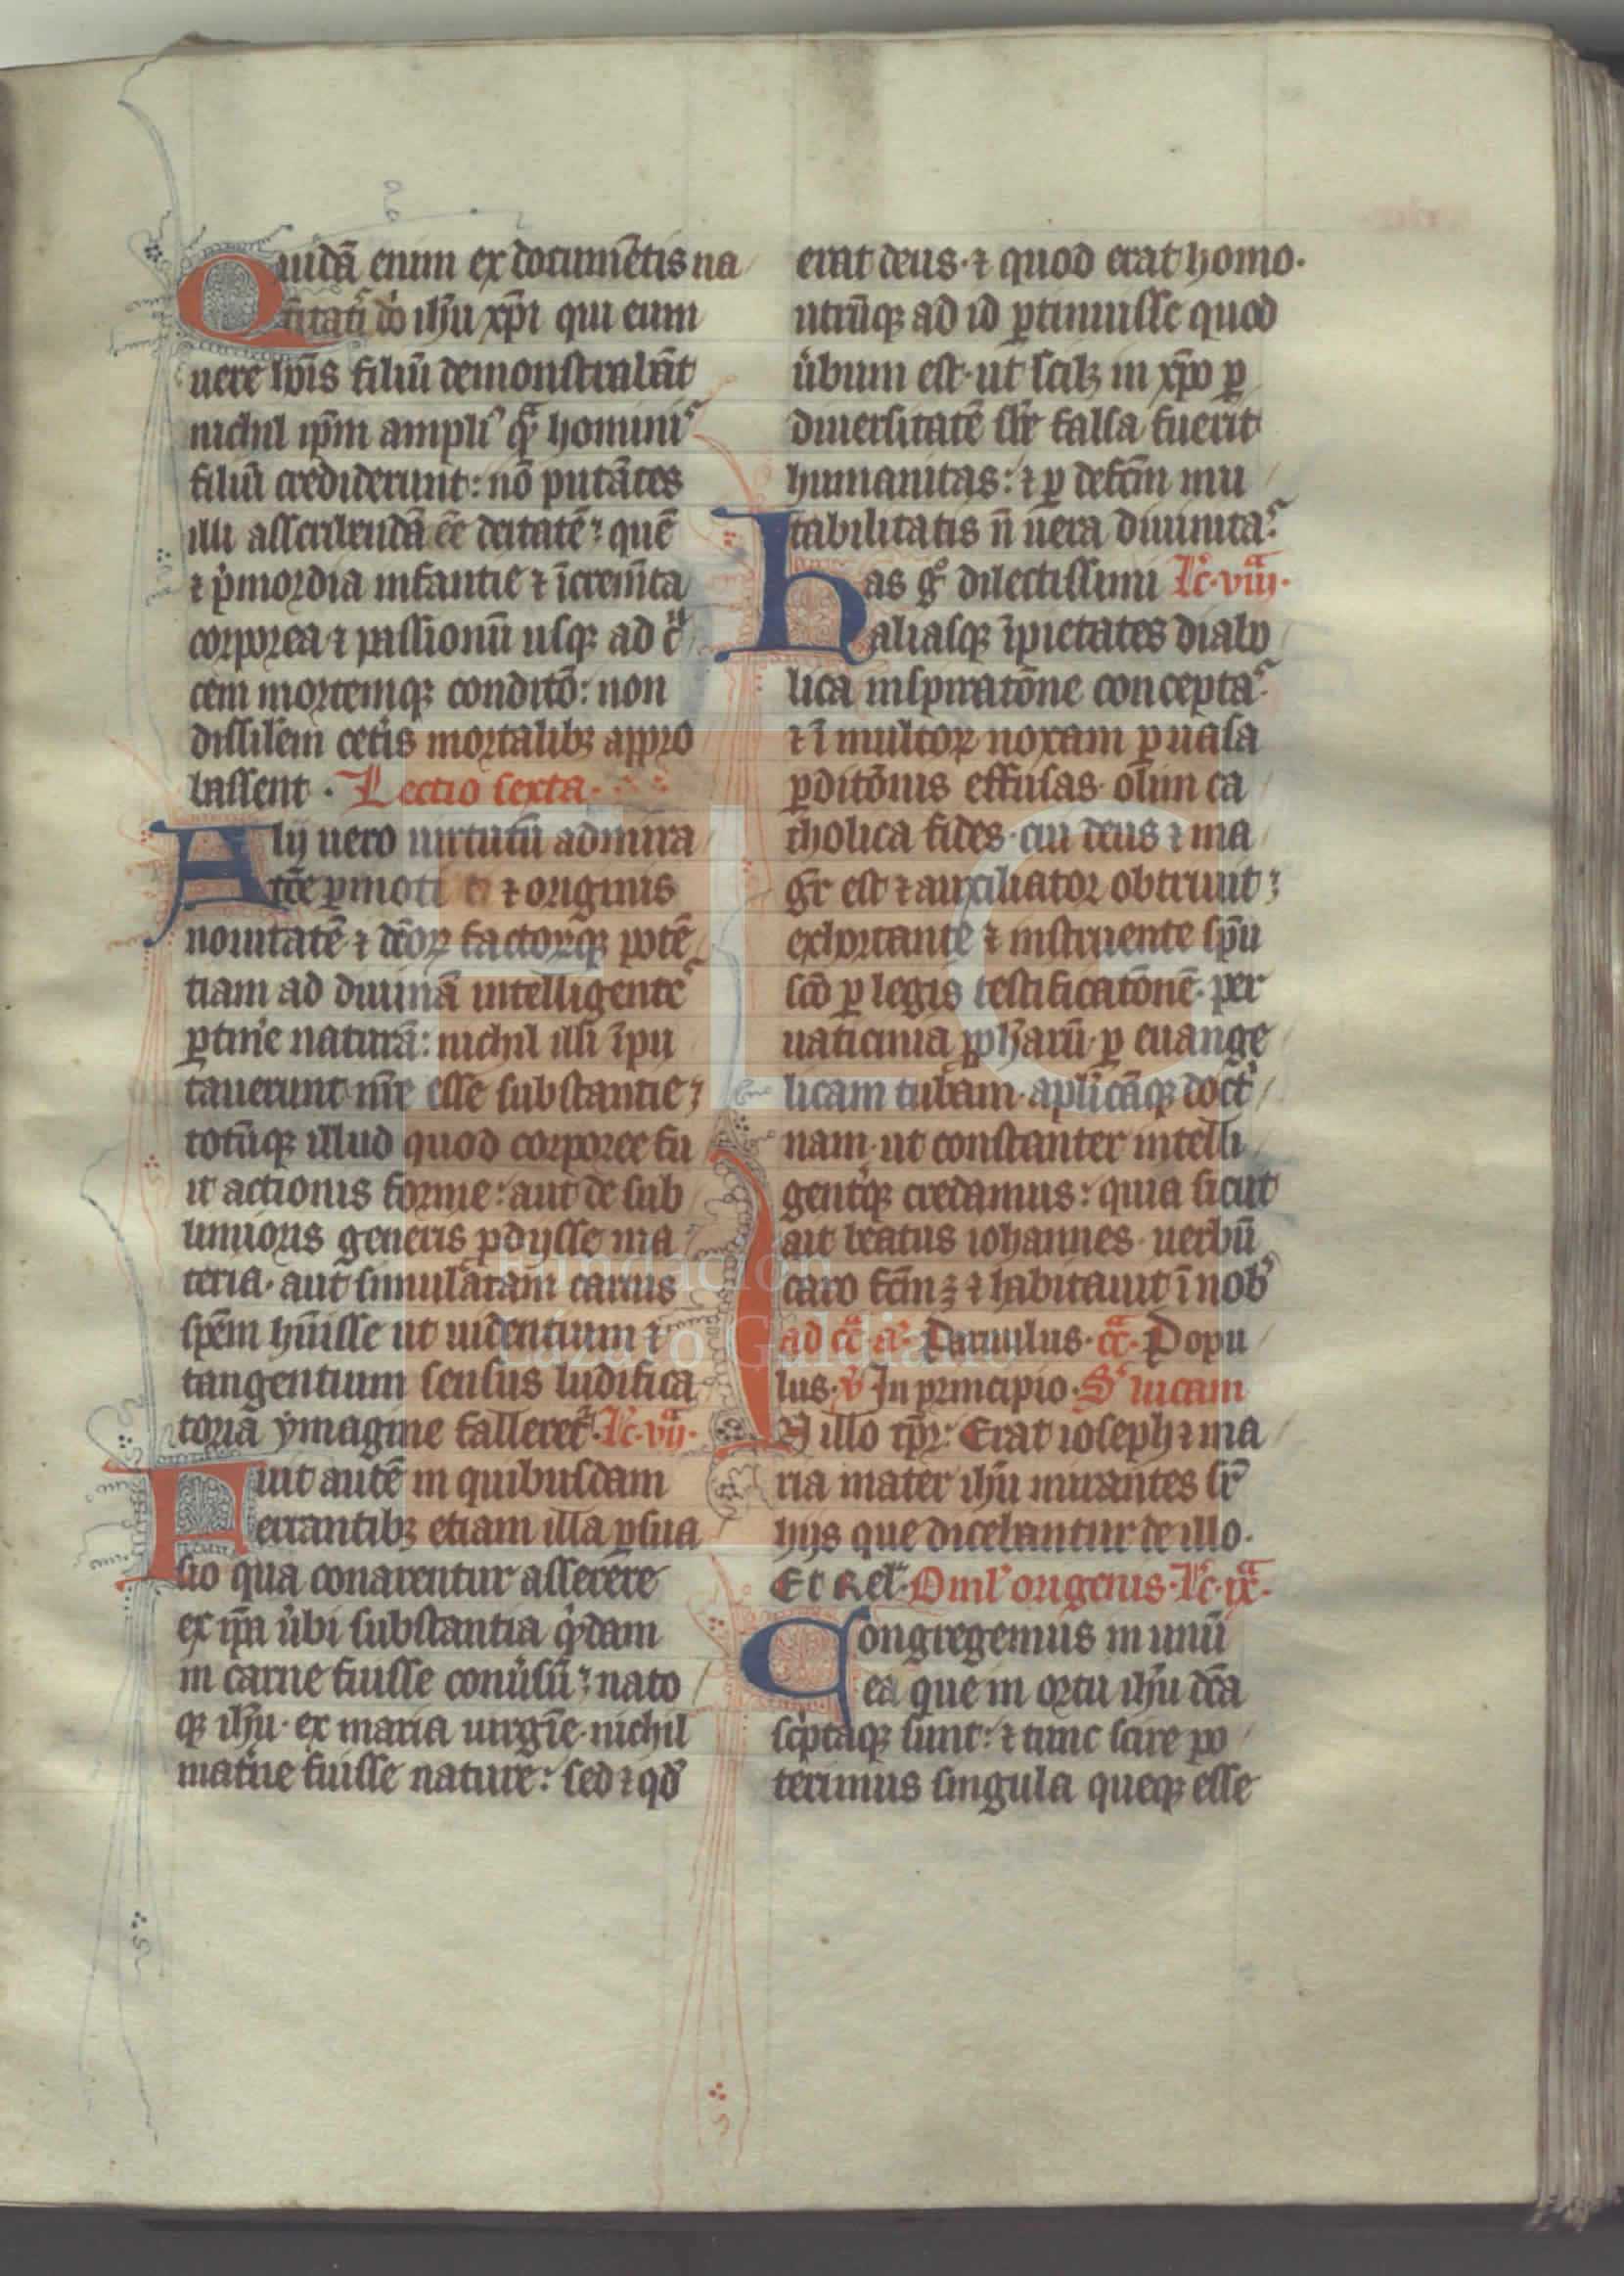 Quidā enim ex documētis na
tītatis dō ihū xp̄i qui eum
uere hōis filiū demonstrabāt
nichil ip̄m ampliꝰ q̄ hominis
filiū crediderunt: nō putātes
illi asscribendā ēē deitatē: quē
⁊ pͥmordia infantie ⁊ īcremīta
corporea ⁊ passionū usqꝫ ad cͬu
cem mortemqꝫ conditō: non
dissilem cetis mortalibꝫ appro
bassent · Lectio sexta·
Alij uero uirtutū admira
tōe ꝑmoti ⁊ originis
nouitatē ⁊ dc̄oꝝ factoꝝqꝫ potē
tiam ad diuinā intelligentes
ꝑtine naturā: nichil illi īpu
tauerunt nr̄e esse substantie:
totūqꝫ illud quod corporee fu
it actionis forme: aut de sub
limioris generis ꝓdijsse ma
teria· aut simulatam carnis
spēm hūisse ut uidentium ⁊
tangentium sensus ludifica
toria ymagine falleret· Lc̄·vijᵃ·
Fuit autē in quibusdam
errantibꝫ etiam illa ꝑsua
sio qua conarentur asserere
ex ip̄a ūbi substantia qͥdam
in carne fuisse conūsū: nato
qꝫ ihū· ex maria uirgīe· nichil
mat̄ne fuisse nature: sed ⁊ qd̄
erat deus· ⁊ quod erat homo·
utrūqꝫ ad id ꝑtinuisse quod
ūbum est· ut scilꝫ in xp̄o ꝑ
diuersitatē sbe falsa fuerit
humanitas: ⁊ ꝑ defcm̄ mu
tabilitatis n̄ uera diuinitas
has gͦ dilectissimi Lc̄·viijᵃ·
aliasqꝫ īpietates diabo
lica inspiratōne conceptas
⁊ ī multoꝝ noxam ꝑ uasa
ꝑditōnis effusas· olim ca
tholica fides· cui deus ⁊ ma
gr̄ est ⁊ auxiliator obtriuit:
exhortante ⁊ instruente sp̄u
scō ꝑ legis testificatōnē· per
uaticinia ꝓphārū· ꝑ euange
licam tubam· apl̄icāqꝫ doct
nam· ut constanter intelli
gentqꝫ credamus: quia sicut
ait beatus iohannes· uerbū
caro fcm̄ ꝫ ⁊ habitauit ī nobꝰ
ad cā· a· Paruulus· cā· Popu
lus· v̄ In principio· Sͨ lucam
In illo tp̄r: Erat ioseph ⁊ ma
ria mater ihū mirantes sr̄
hijs que dicebantur de illo·
Et rel̄· Oml̄ origenis· Lc̄·ixᵃ·
Congregemus in unū
ea que in ortu ihū dc̄a
scͥptaqꝫ sunt: ⁊ tunc scire po
terimus singula queqꝫ esse
FLG
Fundación
Lázaro Galdiano